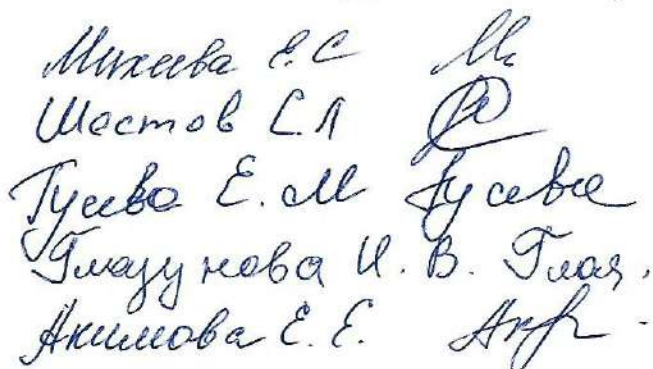 Михеева Е.С
Шестов С.Л
Гусева Е.М Гусева
Глазунова И.В. Глаз.
Акимова Е.Е.